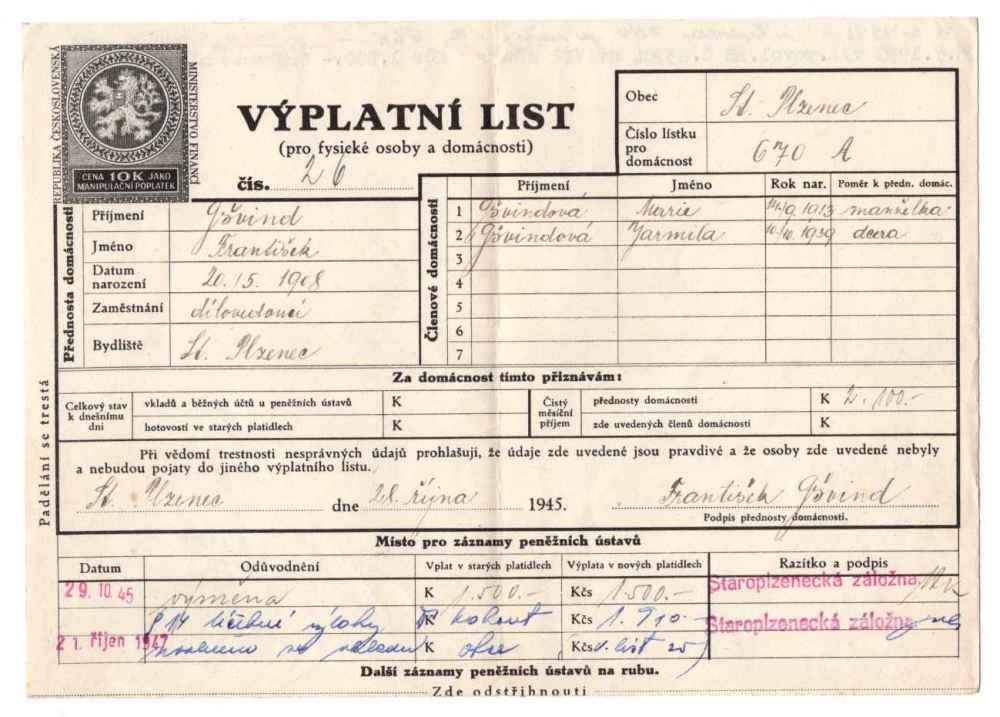 REPUBLIKA ČESKOSLOVENSKÁ
MINISTERSTVO FINANCÍ
CENA 10K JAKO
MANIPULAČNÍ POPLATEK
VÝPLATNÍ LIST
(pro fysické osoby a domácnosti)
čís. 26
Obec St. Plzenec
Číslo lístku pro domácnost 670 A
Přednosta domácnosti
Příjmení Gövind
Jméno František
Datum narození 20./5. 1908
Zaměstnání
Bydliště St. Plzenec
Členové domácnosti
Příjmení Jméno Rok nar. Poměr k předn. domác.
1 Gövindová Marie 9. 1913 manželka
2 Gövindová Jarmila 1939 dcera
3
4
5
6
7
Za domácnost tímto přiznávám:
Celkový stav k dnešnímu dni
vkladů a běžných účtů u peněžních ústavů K
hotovostí ve starých platidlech K
Čistý měsíční příjem
přednosty domácnosti K 2.100.-
zde uvedených členů domácnosti K
Při vědomí trestnosti nesprávných údajů prohlašuji, že údaje zde uvedené jsou pravdivé a že osoby zde uvedené nebyly
a nebudou pojaty do jiného výplatního listu.
St. Plzenec dne 28. října 1945. František Gövind
Podpis přednosty domácnosti.
Padělání se trestá
Místo pro záznamy peněžních ústavů
Datum Odůvodnění Vplat v starých platidlech Výplata v nových platidlech Razítko a podpis
29. 10. 45 výměna K 1.500.- Kčs 1.500.- Staroplzenecká záložna
§ 14 výlohy K Kčs 1.910.- Staroplzenecká záložna
21. říjen 1947 K obce Kčs
Další záznamy peněžních ústavů na rubu.
Zde odstřihnouti